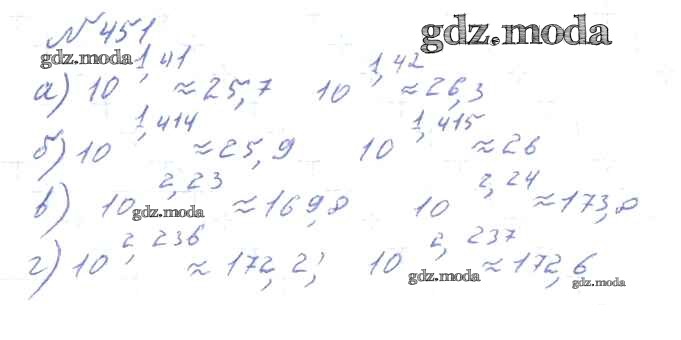 № 451
gdz.moda
gdz.moda
а) 10^1,41 ≈ 25,7 10^1,42 ≈ 26,3
б) 10^1,414 ≈ 25,9 10^1,415 ≈ 26
в) 10^2,23 ≈ 169,8 10^2,24 ≈ 173,8
gdz.moda
г) 10^2,236 ≈ 172,2; 10^2,237 ≈ 172,6
gdz.moda
gdz.moda